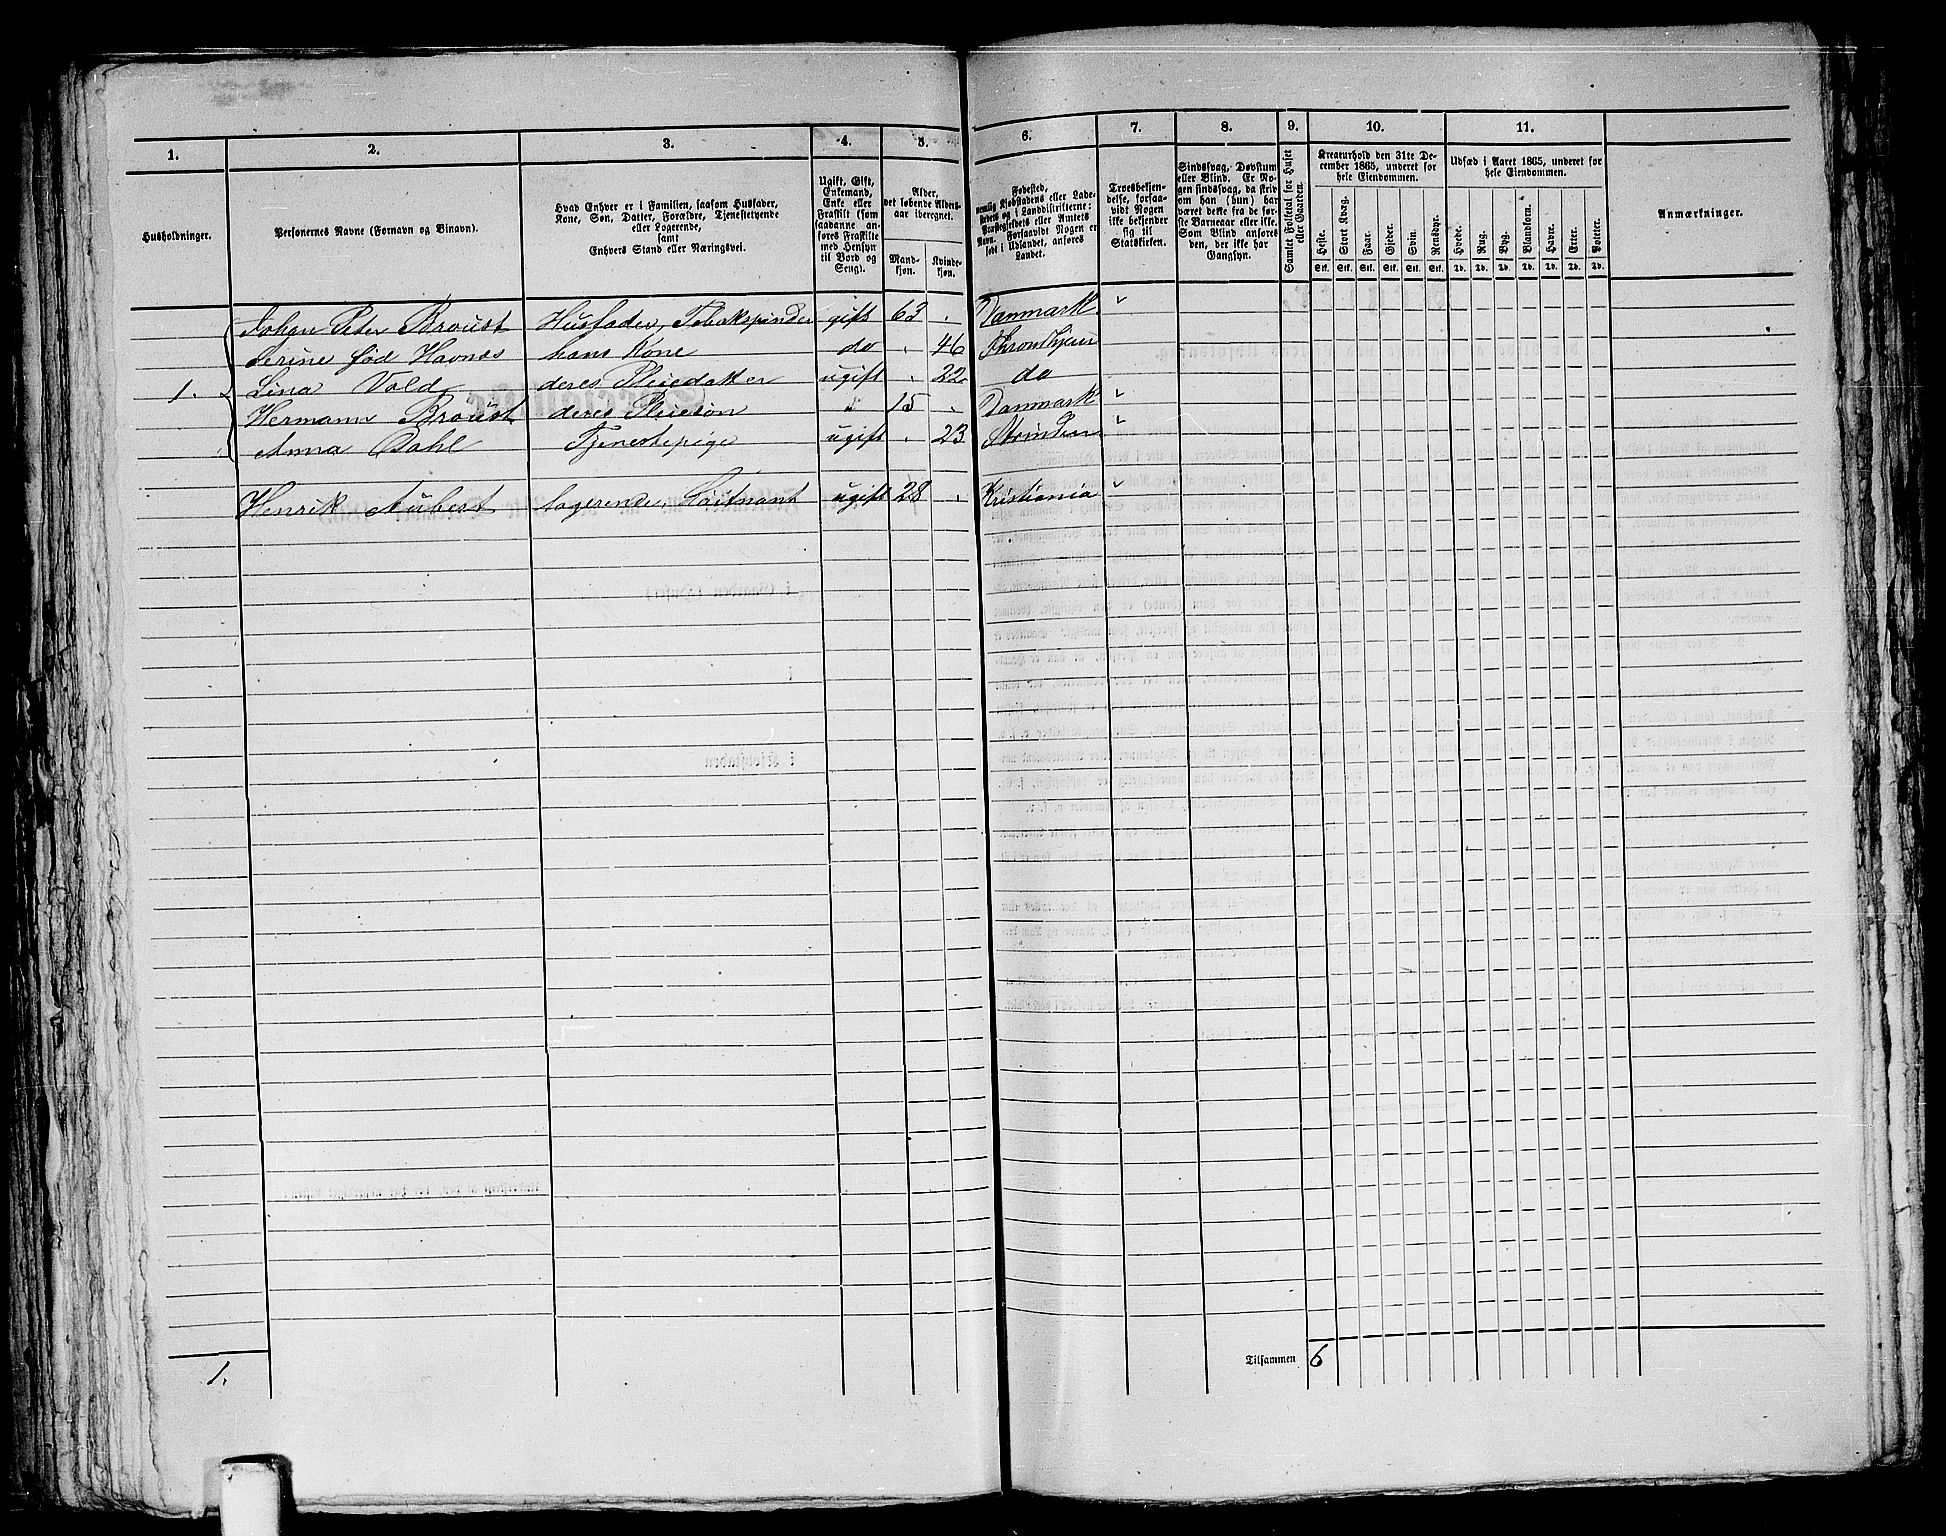 1. 2. 3. 4. 5. 6. 7. 8. 9. 10. 11.
Husholdninger.
Personernes Navne (Fornavn og Binavn).
Hvad Enhver er i Familien, saasom Husfader,
Kone, Søn, Datter, Forældre, Tjenestetyende
eller Logerende,
samt
Enhvers Stand eller Næringsvei.
Ugift, Gift,
Enkemand,
Enke eller
Fraskilt (som
saadanne an-
føres Fraskilte
med Hensyn
til Bord og
Seng).
Alder,
det løbende Alders-
aar iberegnet.
Mand-
kjøn.
Kvinde-
kjøn.
Fødested,
nemlig Kjøbstadens eller Lade-
stedets og i Landdistrikterne:
Præstegjeldets eller Amtets
Navn. Forsaavidt Nogen er
født i Udlandet, anføres
Landet.
Troesbekjen-
delse, forsaa-
vidt Nogen
ikke bekjender
sig til
Statskirken.
Sindssvag, Døvstum
eller Blind. Er No-
gen sindssvag, da skriv
om han (hun) har
været dette fra de før-
ste Barneaar eller ikke.
Som Blind anføres
den, der ikke har
Gangsyn.
Samlet Folketal for Huset
eller Gaarden.
Kreaturhold den 31te De-
cember 1865, underet for
hele Eiendommen.
Heste. Stort Kvæg. Faar. Gjeder. Svin. Rensdyr.
Stk. Stk. Stk. Stk. Stk. Stk.
Udsæd i Aaret 1865, underet for
hele Eiendommen.
Hvede. Rug. Byg. Blandkorn. Havre. Erter. Poteter.
Td. Td. Td. Td. Td. Td. Td.
Anmærkninger.
Johan Peter Broust Husfader, Tobakspinder gift 63 . Danmark "
Serine fød Havnæs hans Kone do . 46 Throndhjem
1. Lina Vold deres Pleiedatter ugift . 22 do
Hermann Broust deres Pleiesøn 15 . Danmark "
Anna Dahl Tjenestepige ugift . 23 Strinden "
Henrik Aubert logerende, Loitnant ugift 28 . Kristiania "
1. Tilsammen 6